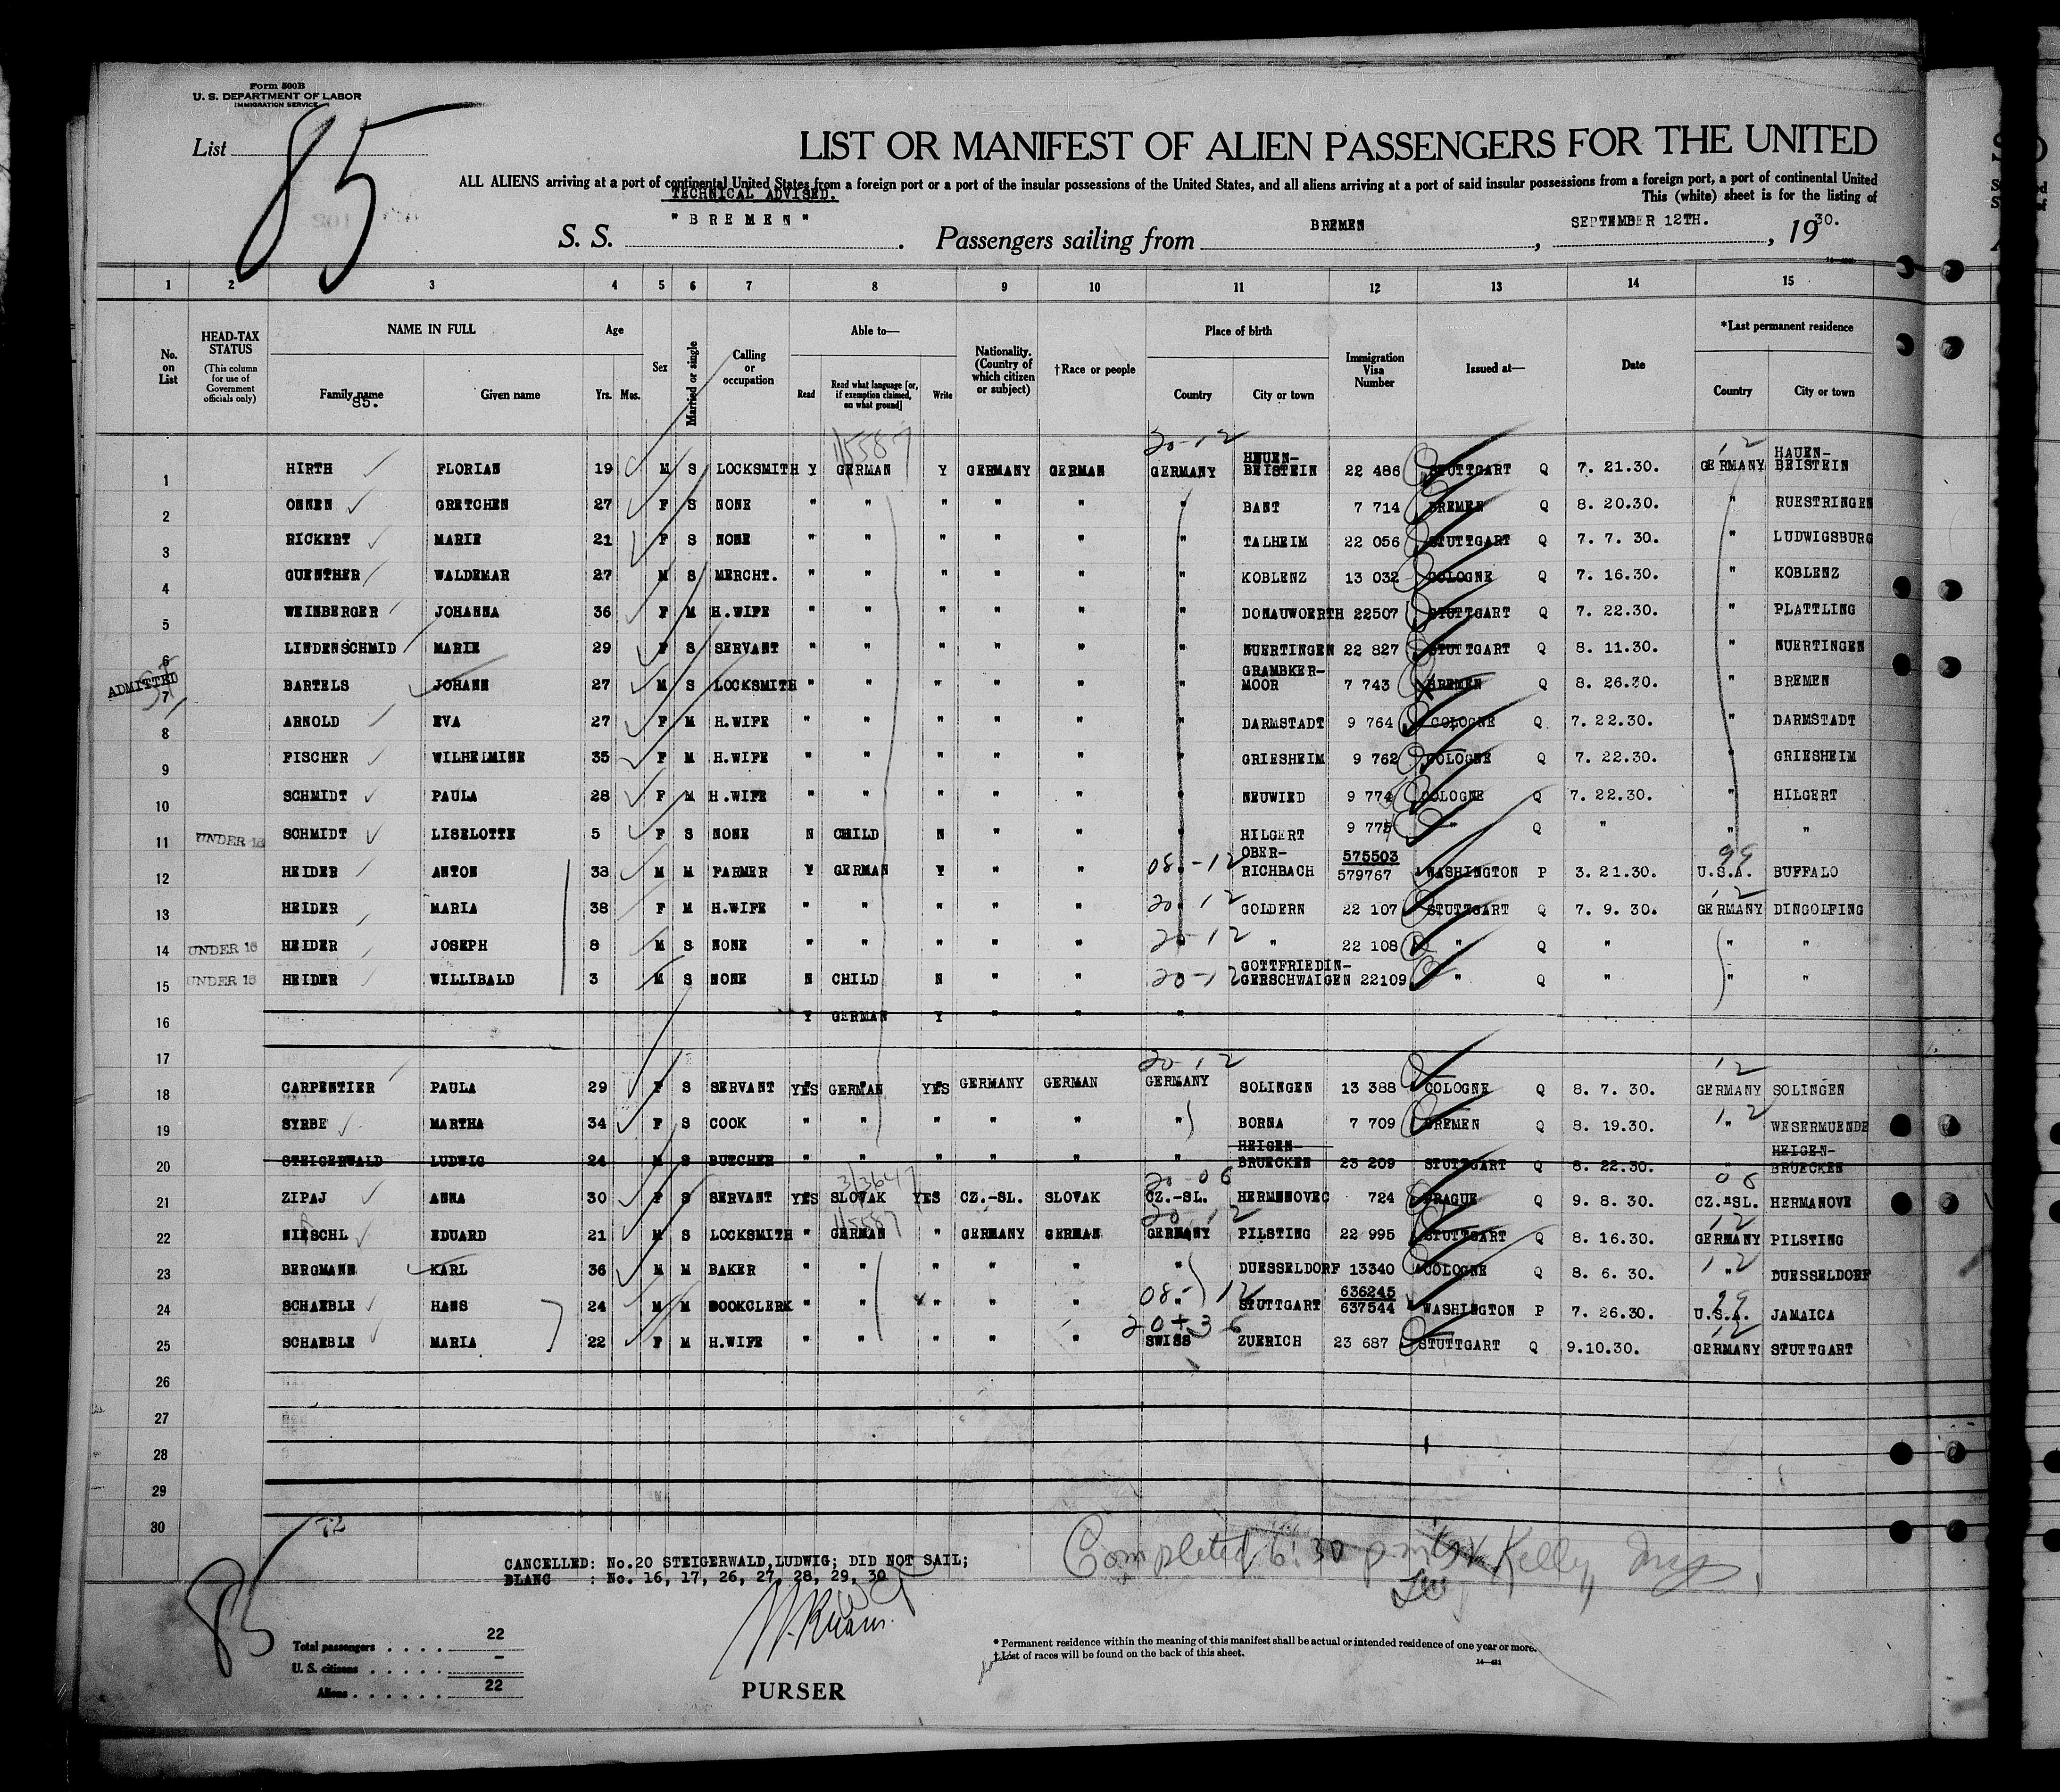 Form 500B
U. S. DEPARTMENT OF LABOR
IMMIGRATION SERVICE
List 85
LIST OR MANIFEST OF ALIEN PASSENGERS FOR THE UNITED
ALL ALIENS arriving at a port of continental United States from a foreign port or a port of the insular possessions of the United States, and all aliens arriving at a port of said insular possessions from a foreign port, a port of continental United
TECHNICAL ADVISED.
This (white) sheet is for the listing of
S. S. "BREMEN". Passengers sailing from BREMEN, SEPTEMBER 12TH., 1930.
1 2 3 4 5 6 7 8 9 10 11 12 13 14 15
No. on List HEAD-TAX STATUS (This column for use of Government officials only) NAME IN FULL Age Sex Married or single Calling or occupation Able to— Nationality. (Country of which citizen or subject) †Race or people Place of birth Immigration Visa Number Issued at— Date *Last permanent residence
Family name Given name Yrs. Mos. Read Read what language [or, if exemption claimed, on what ground] Write Country City or town Country City or town
85.
11/5587 20-12 12
1 HIRTH FLORIAN 19 M S LOCKSMITH Y GERMAN Y GERMANY GERMAN GERMANY HEUEN-BEISTEIN 22 486 STUTTGART Q 7. 21.30. GERMANY HAUEN-BEISTEIN
2 ONNEN GRETCHEN 27 F S NONE " " " " " " BANT 7 714 BREMEN Q 8. 20.30. " RUESTRINGEN
3 RICKERT MARIE 21 F S NONE " " " " " " TALHEIM 22 056 STUTTGART Q 7. 7. 30. " LUDWIGSBURG
4 GUENTHER WALDEMAR 27 M S MERCHT. " " " " " " KOBLENZ 13 032 COLOGNE Q 7. 16.30. " KOBLENZ
5 WEINBERGER JOHANNA 36 F M H.WIFE " " " " " " DONAUWOERTH 22507 STUTTGART Q 7. 22.30. " PLATTLING
6 LINDENSCHMID MARIE 29 F S SERVANT " " " " " " NUERTINGEN 22 827 STUTTGART Q 8. 11.30. " NUERTINGEN
ADMITTED
7 BARTELS JOHANN 27 M S LOCKSMITH " " " " " " GRAMBKER-MOOR 7 743 BREMEN Q 8. 26.30. " BREMEN
8 ARNOLD EVA 27 F M H.WIFE " " " " " " DARMSTADT 9 764 COLOGNE Q 7. 22.30. " DARMSTADT
9 FISCHER WILHELMINE 35 F M H.WIFE " " " " " " GRIESHEIM 9 762 COLOGNE Q 7. 22.30. " GRIESHEIM
10 SCHMIDT PAULA 28 F M H.WIFE " " " " " " NEUWIED 9 774 COLOGNE Q 7. 22.30. " HILGERT
11 UNDER 16 SCHMIDT LISELOTTE 5 F S NONE N CHILD N " " " HILGERT 9 775 " Q " " "
12 HEIDER ANTON 38 M M FARMER Y GERMAN Y " " 08.-12 OBER-RICHBACH 575503 579767 WASHINGTON P 3. 21.30. 99 U.S.A. BUFFALO
13 HEIDER MARIA 38 F M H.WIFE " " " " " 20-12 GOLDERN 22 107 STUTTGART Q 7. 9. 30. 12 GERMANY DINGOLFING
14 UNDER 16 HEIDER JOSEPH 8 M S NONE " " " " " 20-12 " 22 108 " Q " " "
15 UNDER 16 HEIDER WILLIBALD 3 M S NONE N CHILD N " " 20-12 GOTTFRIEDIN-GERSCHWAIGEN 22109 " Q " " "
16 Y GERMAN Y " " "
17
20-12 12
18 CARPENTIER PAULA 29 F S SERVANT YES GERMAN YES GERMANY GERMAN GERMANY SOLINGEN 13 388 COLOGNE Q 8. 7. 30. GERMANY SOLINGEN
19 SYRBE MARTHA 34 F S COOK " " " " " " BORNA 7 709 BREMEN Q 8. 19.30. 12 " WESERMUENDE
20 STEIGERWALD LUDWIG 24 M S BUTCHER " " " " " " HEIGEN-BRUECKEN 23 209 STUTTGART Q 8. 22.30. " HEIGEN-BRUECKEN
20-06 08
21 ZIPAJ ANNA 30 F S SERVANT YES SLOVAK YES CZ.-SL. SLOVAK CZ.-SL. HERMENOVEC 724 PRAGUE Q 9. 8. 30. CZ.-SL. HERMANOVE
11/5587 20-12 12
22 NIRSCHL EDUARD 21 M S LOCKSMITH " GERMAN " GERMANY GERMAN GERMANY PILSTING 22 995 STUTTGART Q 8. 16.30. GERMANY PILSTING
23 BERGMANN KARL 36 M M BAKER " " " " " " DUESSELDORF 13340 COLOGNE Q 8. 6. 30. 12 " DUESSELDORF
24 SCHAEBLE HANS 24 M M BOOKCLERK " " " " " 08.-12 " STUTTGART 636245 637544 WASHINGTON P 7. 26.30. 99 U.S.A. JAMAICA
25 SCHAEBLE MARIA 22 F M H.WIFE " " " " " 20+36 SWISS ZUERICH 23 687 STUTTGART Q 9.10.30. 12 GERMANY STUTTGART
26
27
28
29
30
72
CANCELLED: No.20 STEIGERWALD,LUDWIG; DID NOT SAIL;
BLANC : No. 16, 17, 26, 27, 28, 29, 30
Completed 6:30 pm Kelly, Insp.
85
Total passengers . . . . 22
U. S. citizens . . . . . –
Aliens . . . . . . 22
PURSER
* Permanent residence within the meaning of this manifest shall be actual or intended residence of one year or more.
† List of races will be found on the back of this sheet.